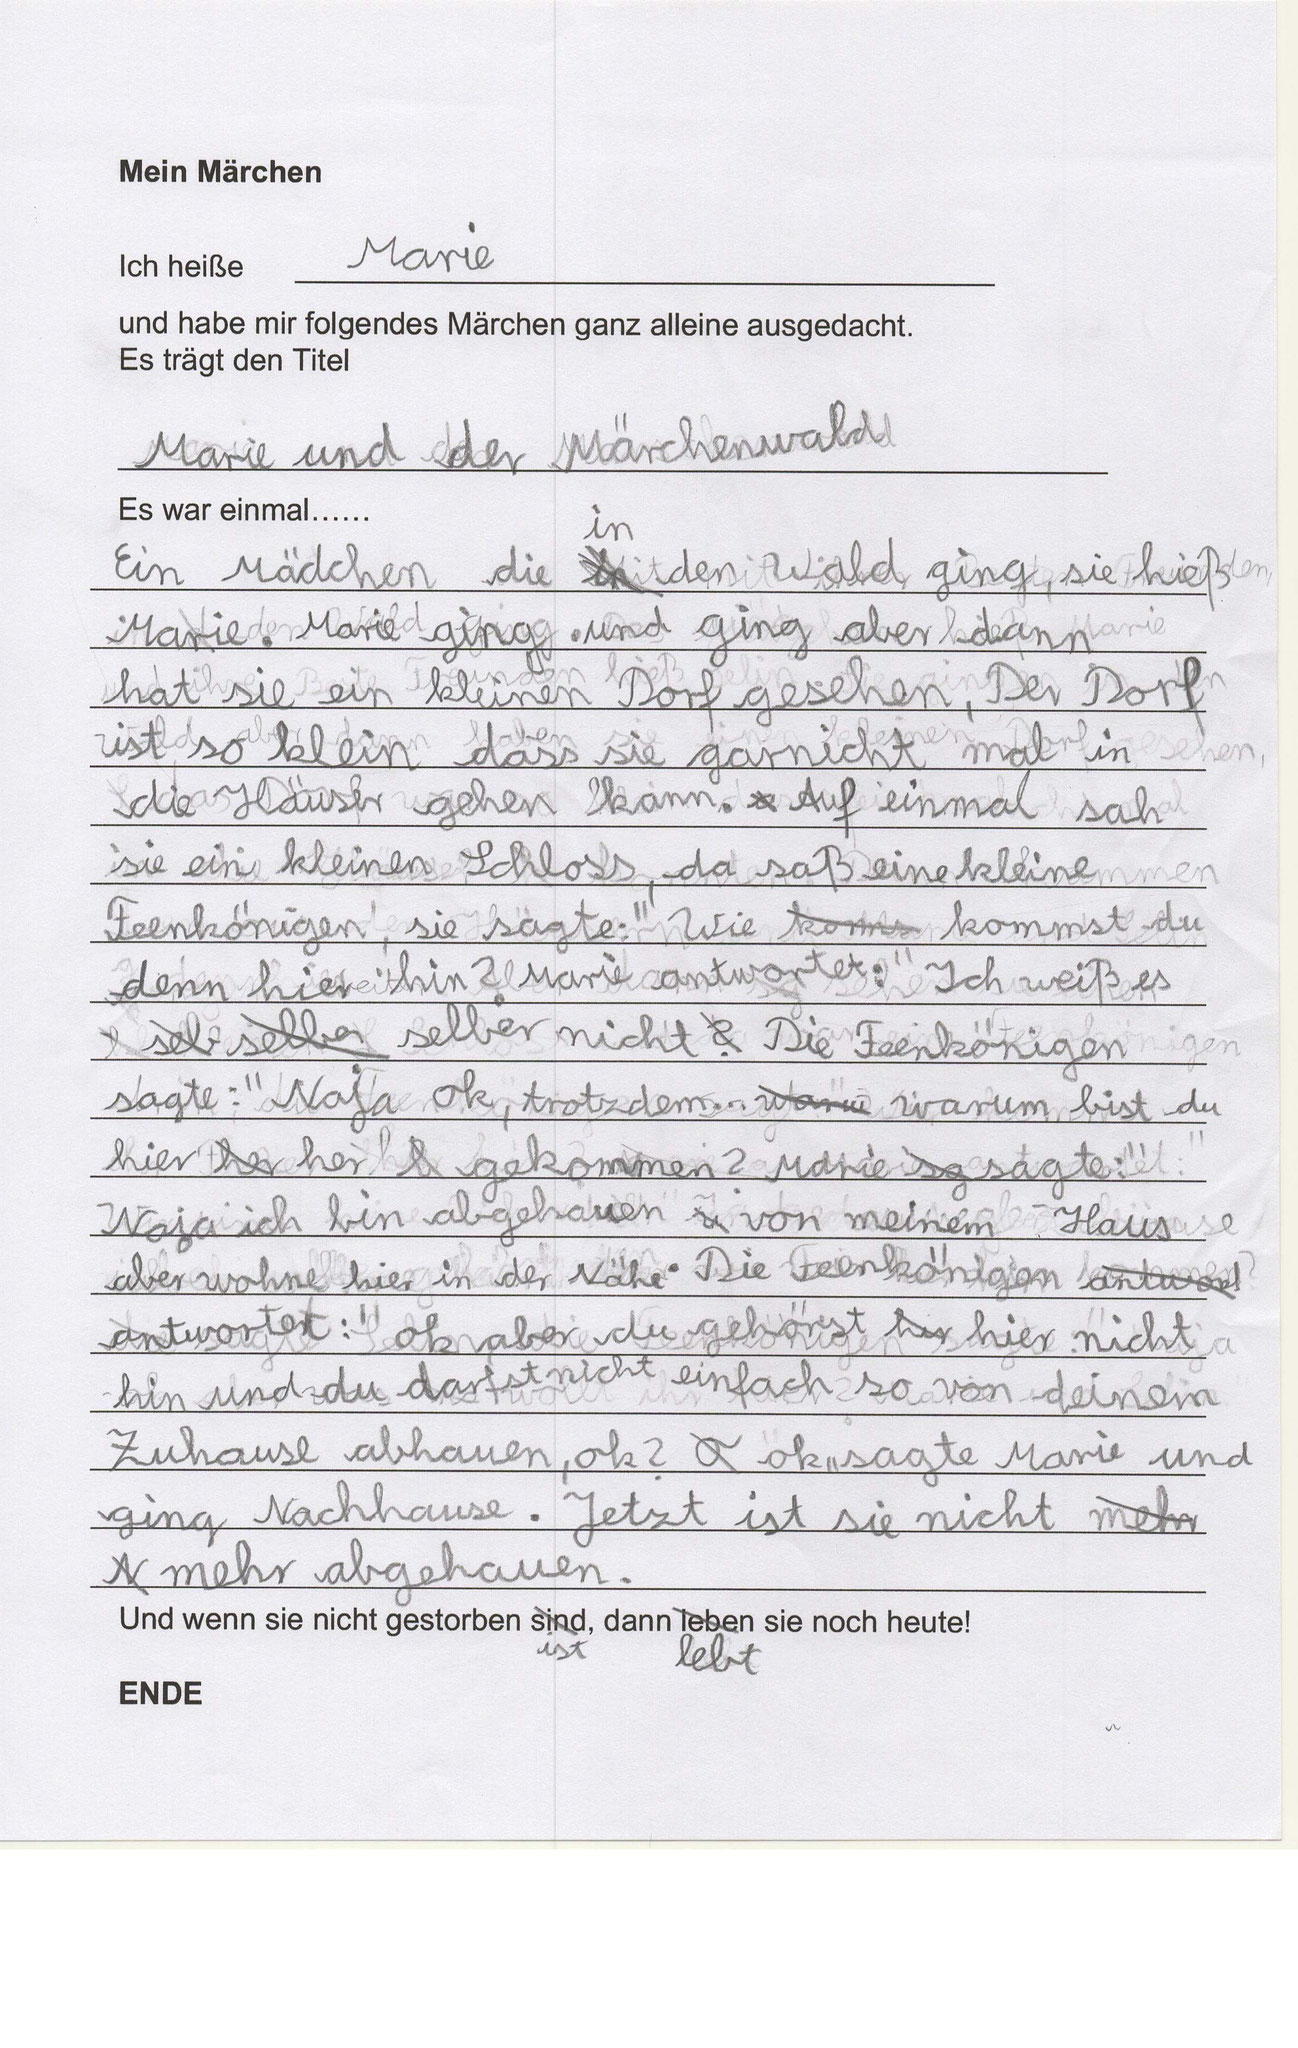 Mein Märchen
Ich heiße Marie
und habe mir folgendes Märchen ganz alleine ausgedacht.
Es trägt den Titel
Marie und der Märchenwald
Es war einmal......
in
Ein Mädchen die den Wald ging, sie hieß
Marie. Marie ging und ging aber dann
hat sie ein kleinen Dorf gesehen, Der Dorf
ist so klein dass sie garnicht mal in
die Häuser gehen kann. Auf einmal sah
sie ein kleinen Schloss, da saß eine kleine
Feenkönigen, sie sagte:" Wie komms kommst du
denn hier hin? Marie antwortet:" Ich weiß es
sel selber selber nicht? Die Feenkönigen
sagte:" Naja ok, trotzdem... warum bist du
hier her her gekommen? Marie sg sagte:"
Naja ich bin abgehauen von meinem Haus
aber wohne hier in der Nähe. Die Feenkönigen antwort
antwortet:" ok aber du gehörst her hier nicht
hin und du darfst nicht einfach so von deinem
Zuhause abhauen, ok? ok" sagte Marie und
ging Nachhause. Jetzt ist sie nicht mehr
mehr abgehauen.
Und wenn sie nicht gestorben sind, dann leben sie noch heute!
ist lebt
ENDE